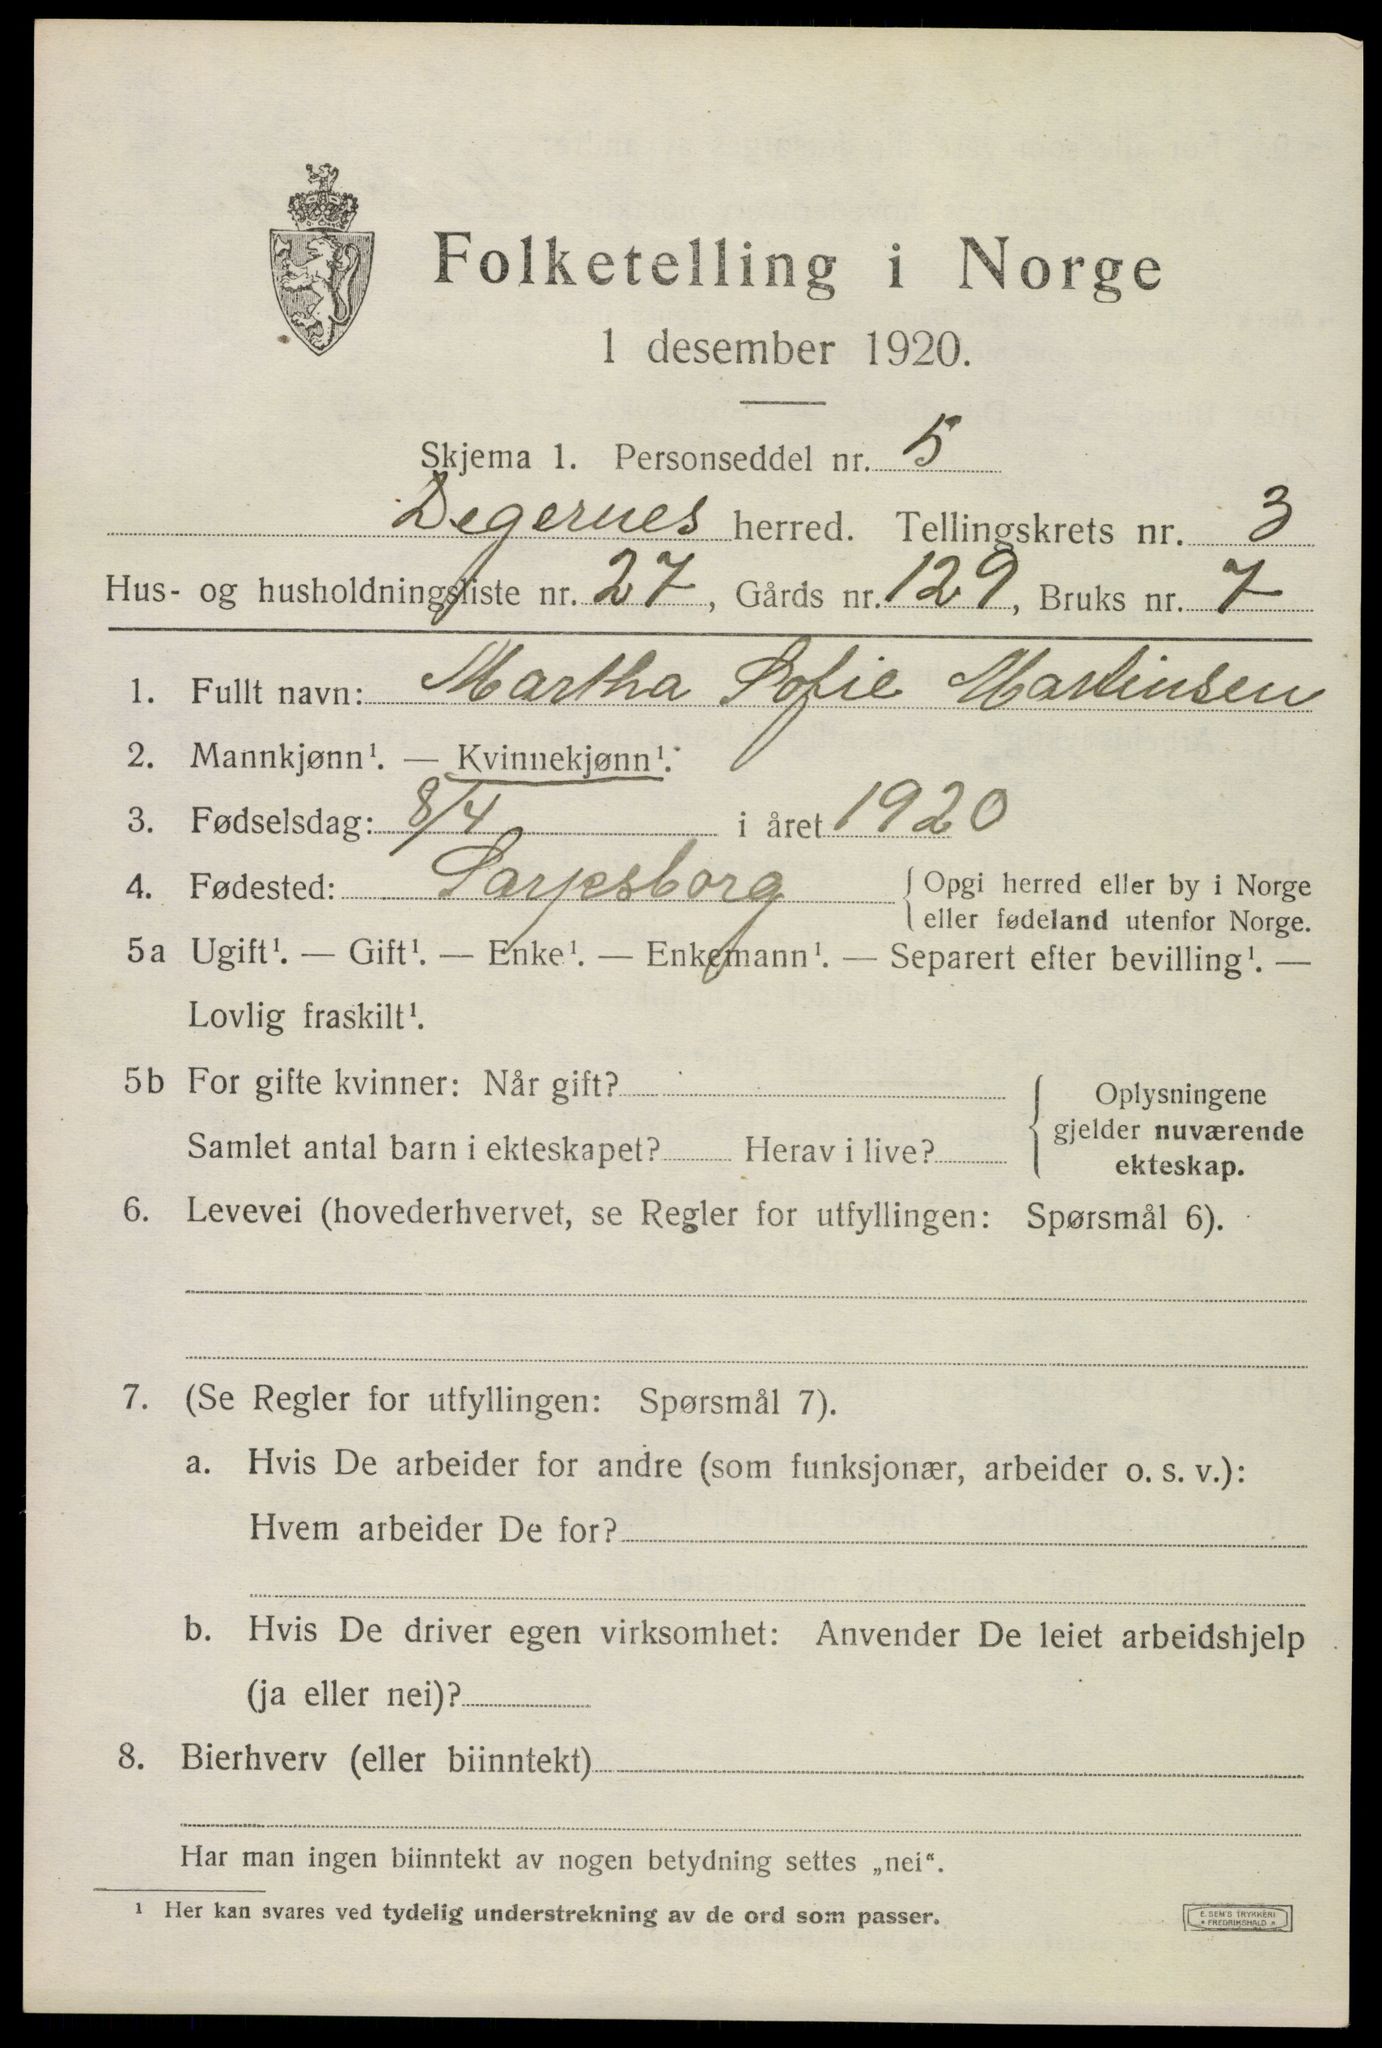 Folketelling i Norge
1 desember 1920.
Skjema 1. Personseddel nr. 5
Degernes herred. Tellingskrets nr. 3
Hus- og husholdningsliste nr. 27, Gårds nr. 129, Bruks nr. 7
1. Fullt navn: Martha Sofie Martinsen
2. Mannkjønn¹. — Kvinnekjønn¹.
3. Fødselsdag: 8/4 i året 1920
4. Fødested: Sarpsborg { Opgi herred eller by i Norge
eller fødeland utenfor Norge.
5a Ugift¹. — Gift¹. — Enke¹. — Enkemann¹. — Separert efter bevilling¹. —
Lovlig fraskilt¹.
5b For gifte kvinner: Når gift? { Oplysningene
gjelder nuværende
Samlet antal barn i ekteskapet? Herav i live? ekteskap.
6. Levevei (hovederhvervet, se Regler for utfyllingen: Spørsmål 6).
7. (Se Regler for utfyllingen: Spørsmål 7).
a. Hvis De arbeider for andre (som funksjonær, arbeider o. s. v.):
Hvem arbeider De for?
b. Hvis De driver egen virksomhet: Anvender De leiet arbeidshjelp
(ja eller nei)?
8. Bierhverv (eller biinntekt)
Har man ingen biinntekt av nogen betydning settes „nei“.
¹ Her kan svares ved tydelig understrekning av de ord som passer.
E. SEM'S TRYKKERI
* FREDRIKSHALD *